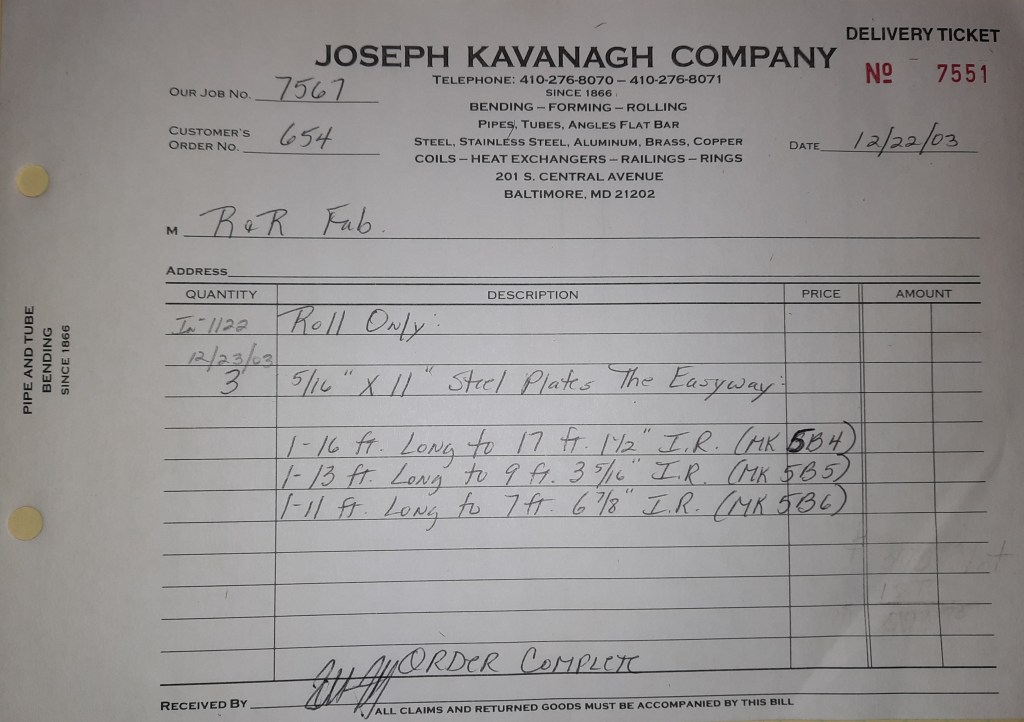 DELIVERY TICKET
JOSEPH KAVANAGH COMPANY
Nº 7551
TELEPHONE: 410-276-8070 – 410-276-8071
SINCE 1866
BENDING – FORMING – ROLLING
PIPES, TUBES, ANGLES FLAT BAR
STEEL, STAINLESS STEEL, ALUMINUM, BRASS, COPPER
COILS – HEAT EXCHANGERS – RAILINGS – RINGS
201 S. CENTRAL AVENUE
BALTIMORE, MD 21202
OUR JOB NO. 7567
CUSTOMER'S
ORDER NO. 654
DATE 12/22/03
M R & R Fab.
ADDRESS
QUANTITY DESCRIPTION PRICE AMOUNT
In-1122 Roll Only:
12/23/03
3 5/16" X 11" Steel Plates The Easyway:
1-16 ft. Long to 17 ft. 1 1/2" I.R. (MK 5B4)
1-13 ft. Long to 9 ft. 3 5/16" I.R. (MK 5B5)
1-11 ft. Long to 7 ft. 6 7/8" I.R. (MK 5B6)
ORDER COMPLETE
RECEIVED BY
ALL CLAIMS AND RETURNED GOODS MUST BE ACCOMPANIED BY THIS BILL
PIPE AND TUBE
BENDING
SINCE 1866